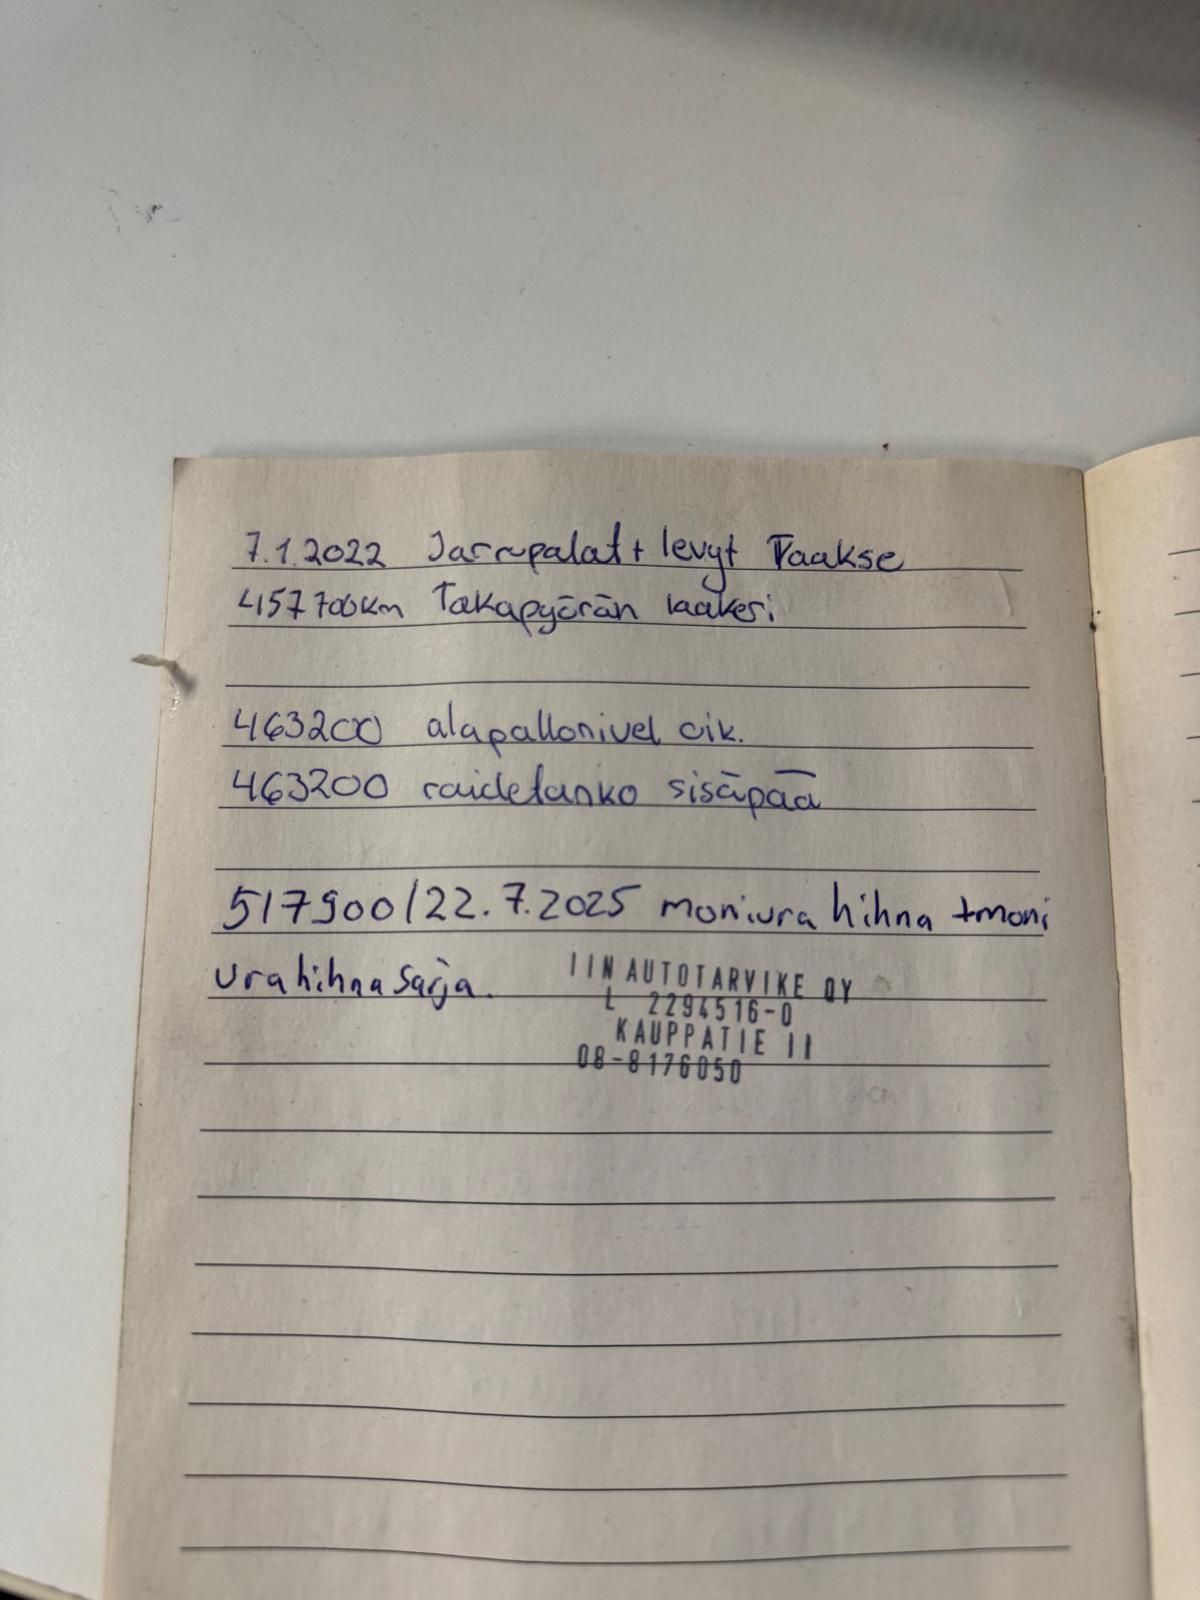 7.1.2022 Jarrupalat + levyt Taakse
457700km Takapyörän laakeri
463200 alapallonivel oik.
463200 raidetanko sisäpää
517900/22.7.2025 moniura hihna +moni
urahihna sarja.
IIN AUTOTARVIKE OY
L 2294516-0
KAUPPATIE 11
08-8176050